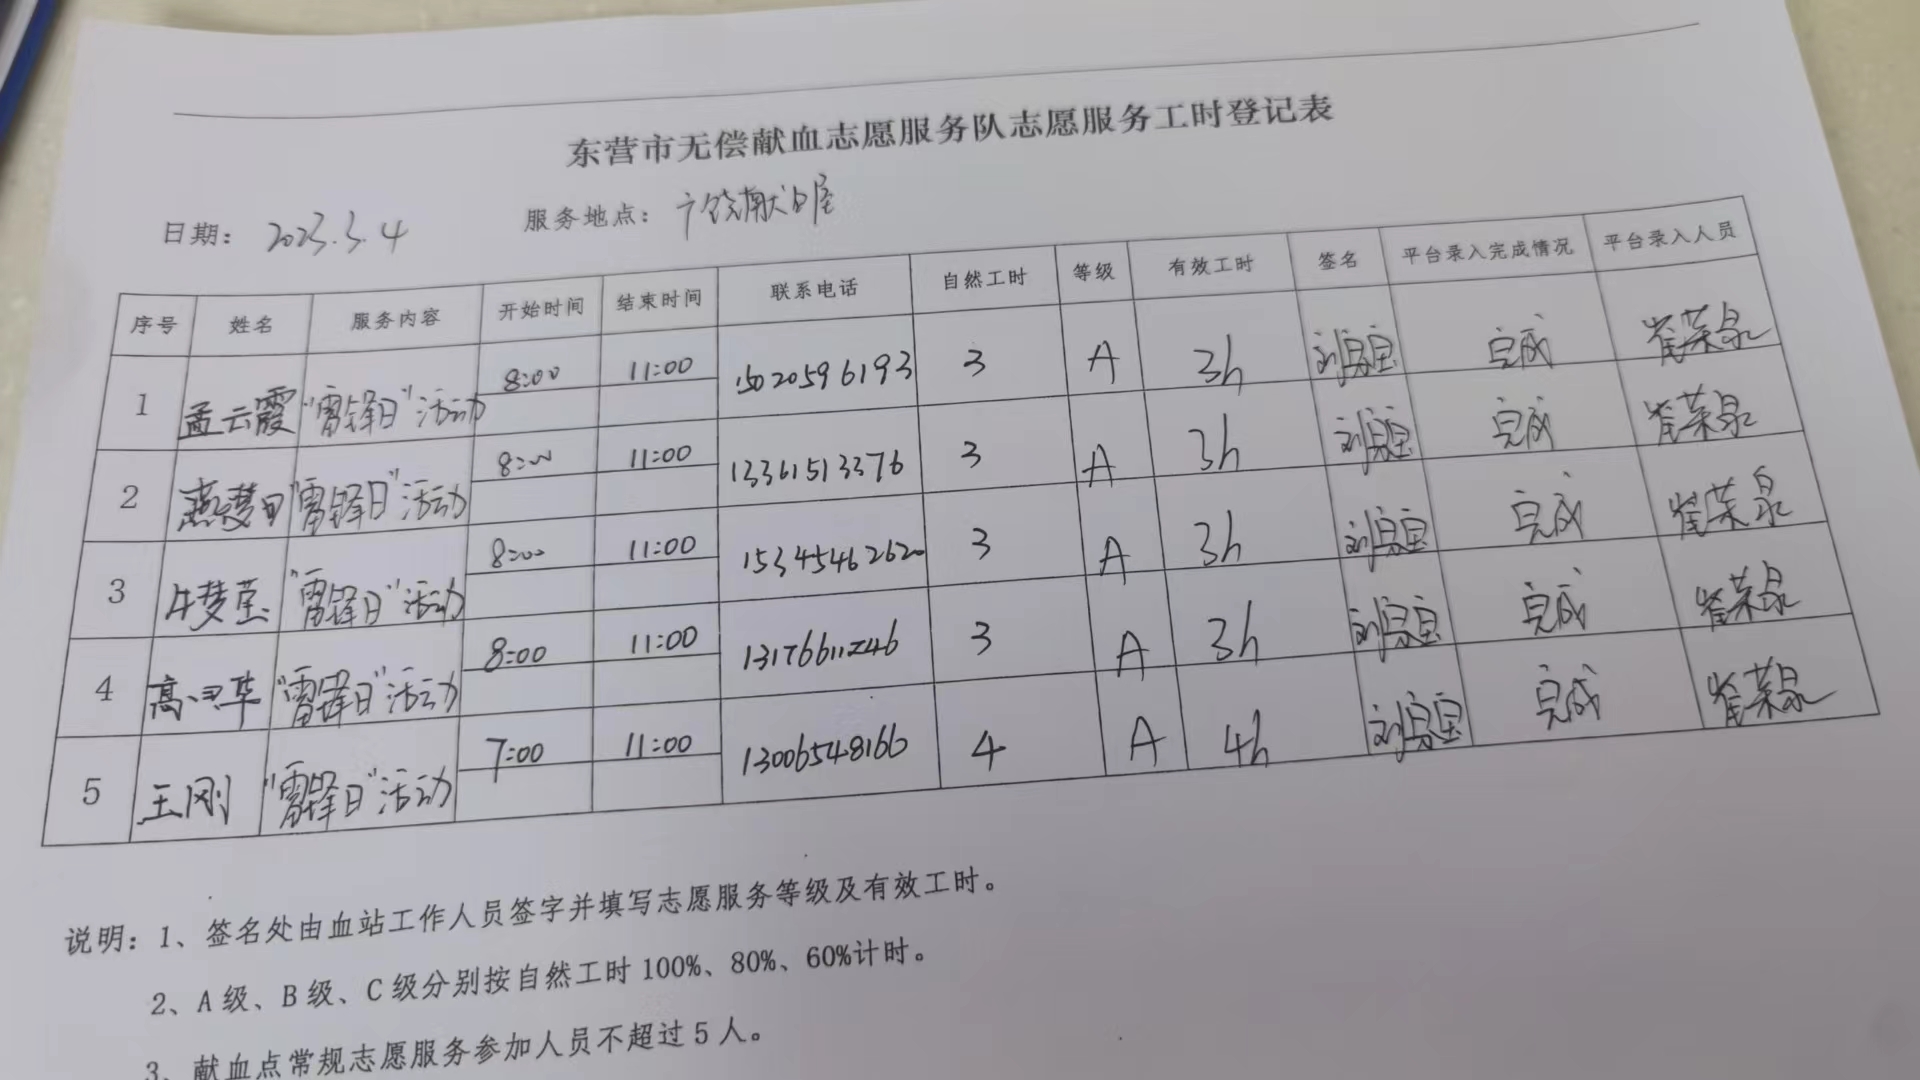 东营市无偿献血志愿服务队志愿服务工时登记表
日期：2023.3.4 服务地点：广饶献血屋
序号 姓名 服务内容 开始时间 结束时间 联系电话 自然工时 等级 有效工时 签名 平台录入完成情况 平台录入人员
1 孟云霞 “雷锋日”活动 8:00 11:00 15020596193 3 A 3h 完成 崔荣泉
2 燕 “雷锋日”活动 8:00 11:00 13361513376 3 A 3h 完成 崔荣泉
3 牛梦莹 “雷锋日”活动 8:00 11:00 15345462620 3 A 3h 完成 崔荣泉
4 高 华 “雷锋日”活动 8:00 11:00 3 A 3h 完成 崔荣泉
5 王刚 “雷锋日”活动 7:00 11:00 13006548166 4 A 4h 完成 崔荣泉
说明：1、签名处由血站工作人员签字并填写志愿服务等级及有效工时。
2、A级、B级、C级分别按自然工时100%、80%、60%计时。
3、献血点常规志愿服务参加人员不超过5人。